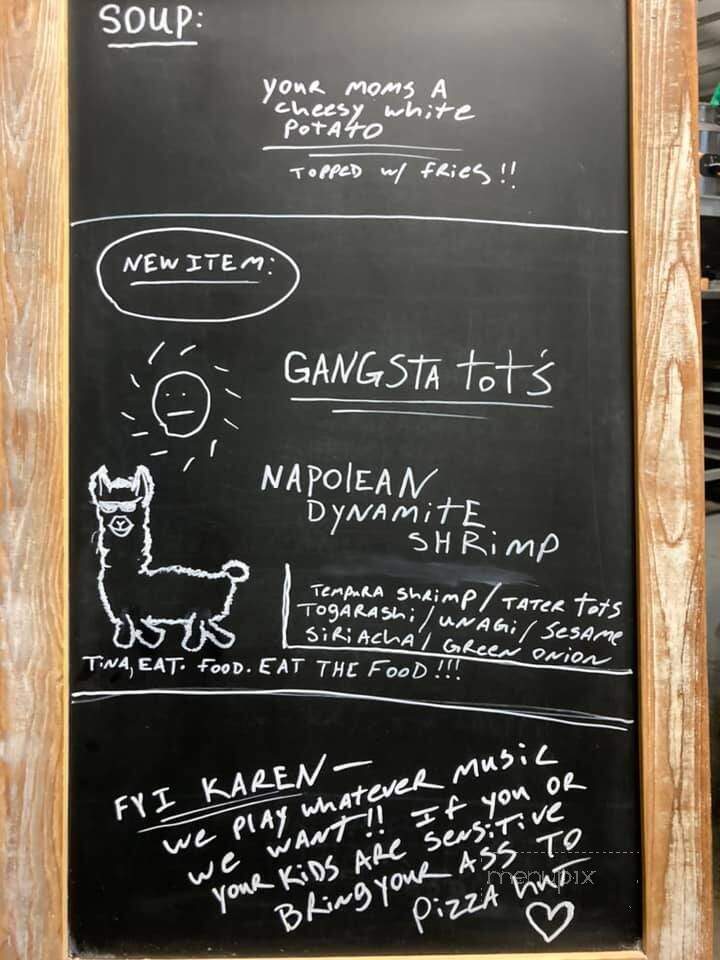 SOUP:
YOUR MOMS A
CHEESY WHITE
POTATO
TOPPED W/ FRIES!!
NEW ITEM:
GANGSTA TOT'S
NAPOLEAN
DYNAMITE
SHRIMP
TEMPURA SHRIMP / TATER TOTS
TOGARASHI / UNAGI / SESAME
SIRIACHA / GREEN ONION
TINA, EAT. FOOD. EAT THE FOOD!!!
FYI KAREN—
WE PLAY WHATEVER MUSIC
WE WANT!! IF YOU OR
YOUR KIDS ARE SENSITIVE
BRING YOUR ASS TO
PIZZA HUT
menupix